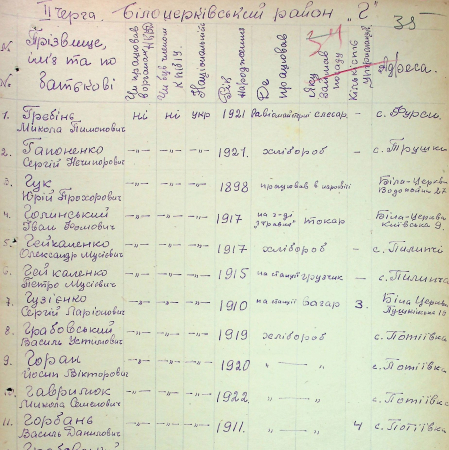 II черга. Білоцерківський район "Г" 39
34
№ № Прізвище, ім'я та по батькові
Чи працював
Чи був членом КП(б)У.
Національність
Рік народження
Де працював
Яку займав посаду
Кількість
Адреса.
1. Гребінь Микола Пимонович ні ні укр 1921 слесар - с. Фурси.
2. Гапоненко Сергій Нечипорович -"- -"- -"- 1921. хлібороб - с. Трушки
3. Гук Юрій Прохорович -"- -"- -"- 1898 працював в Біла-Церква
4. Голинський Іван Фомович -"- -"- -"- 1917 на з-ді токар Біла-Церква Київська 9.
5. Гейкаленко Олександр Мусієвич -"- -"- -"- 1917 хлібороб - с. Пилипчі
6. Гейкаленко Петро Мусієвич -"- -"- -"- 1915 на станції грузчик - с. Пилипча
7. Гузієнко Сергій Ларіонович -"- -"- -"- 1910 на станції вагар 3. Біла Церква
8. Грабовський Василь Устимович -"- -"- -"- 1919 хлібороб - с. Потіївка
9. Горан Йосип Вікторович -"- -"- -"- 1920 -"- -"- с. Потіївка
10. Гаврилюк Микола Семенович -"- -"- -"- 1922 -"- -"- с. Потіївка
11. Горбань Василь Данилович -"- -"- -"- 1911. -"- -"- 4 с. Потіївка